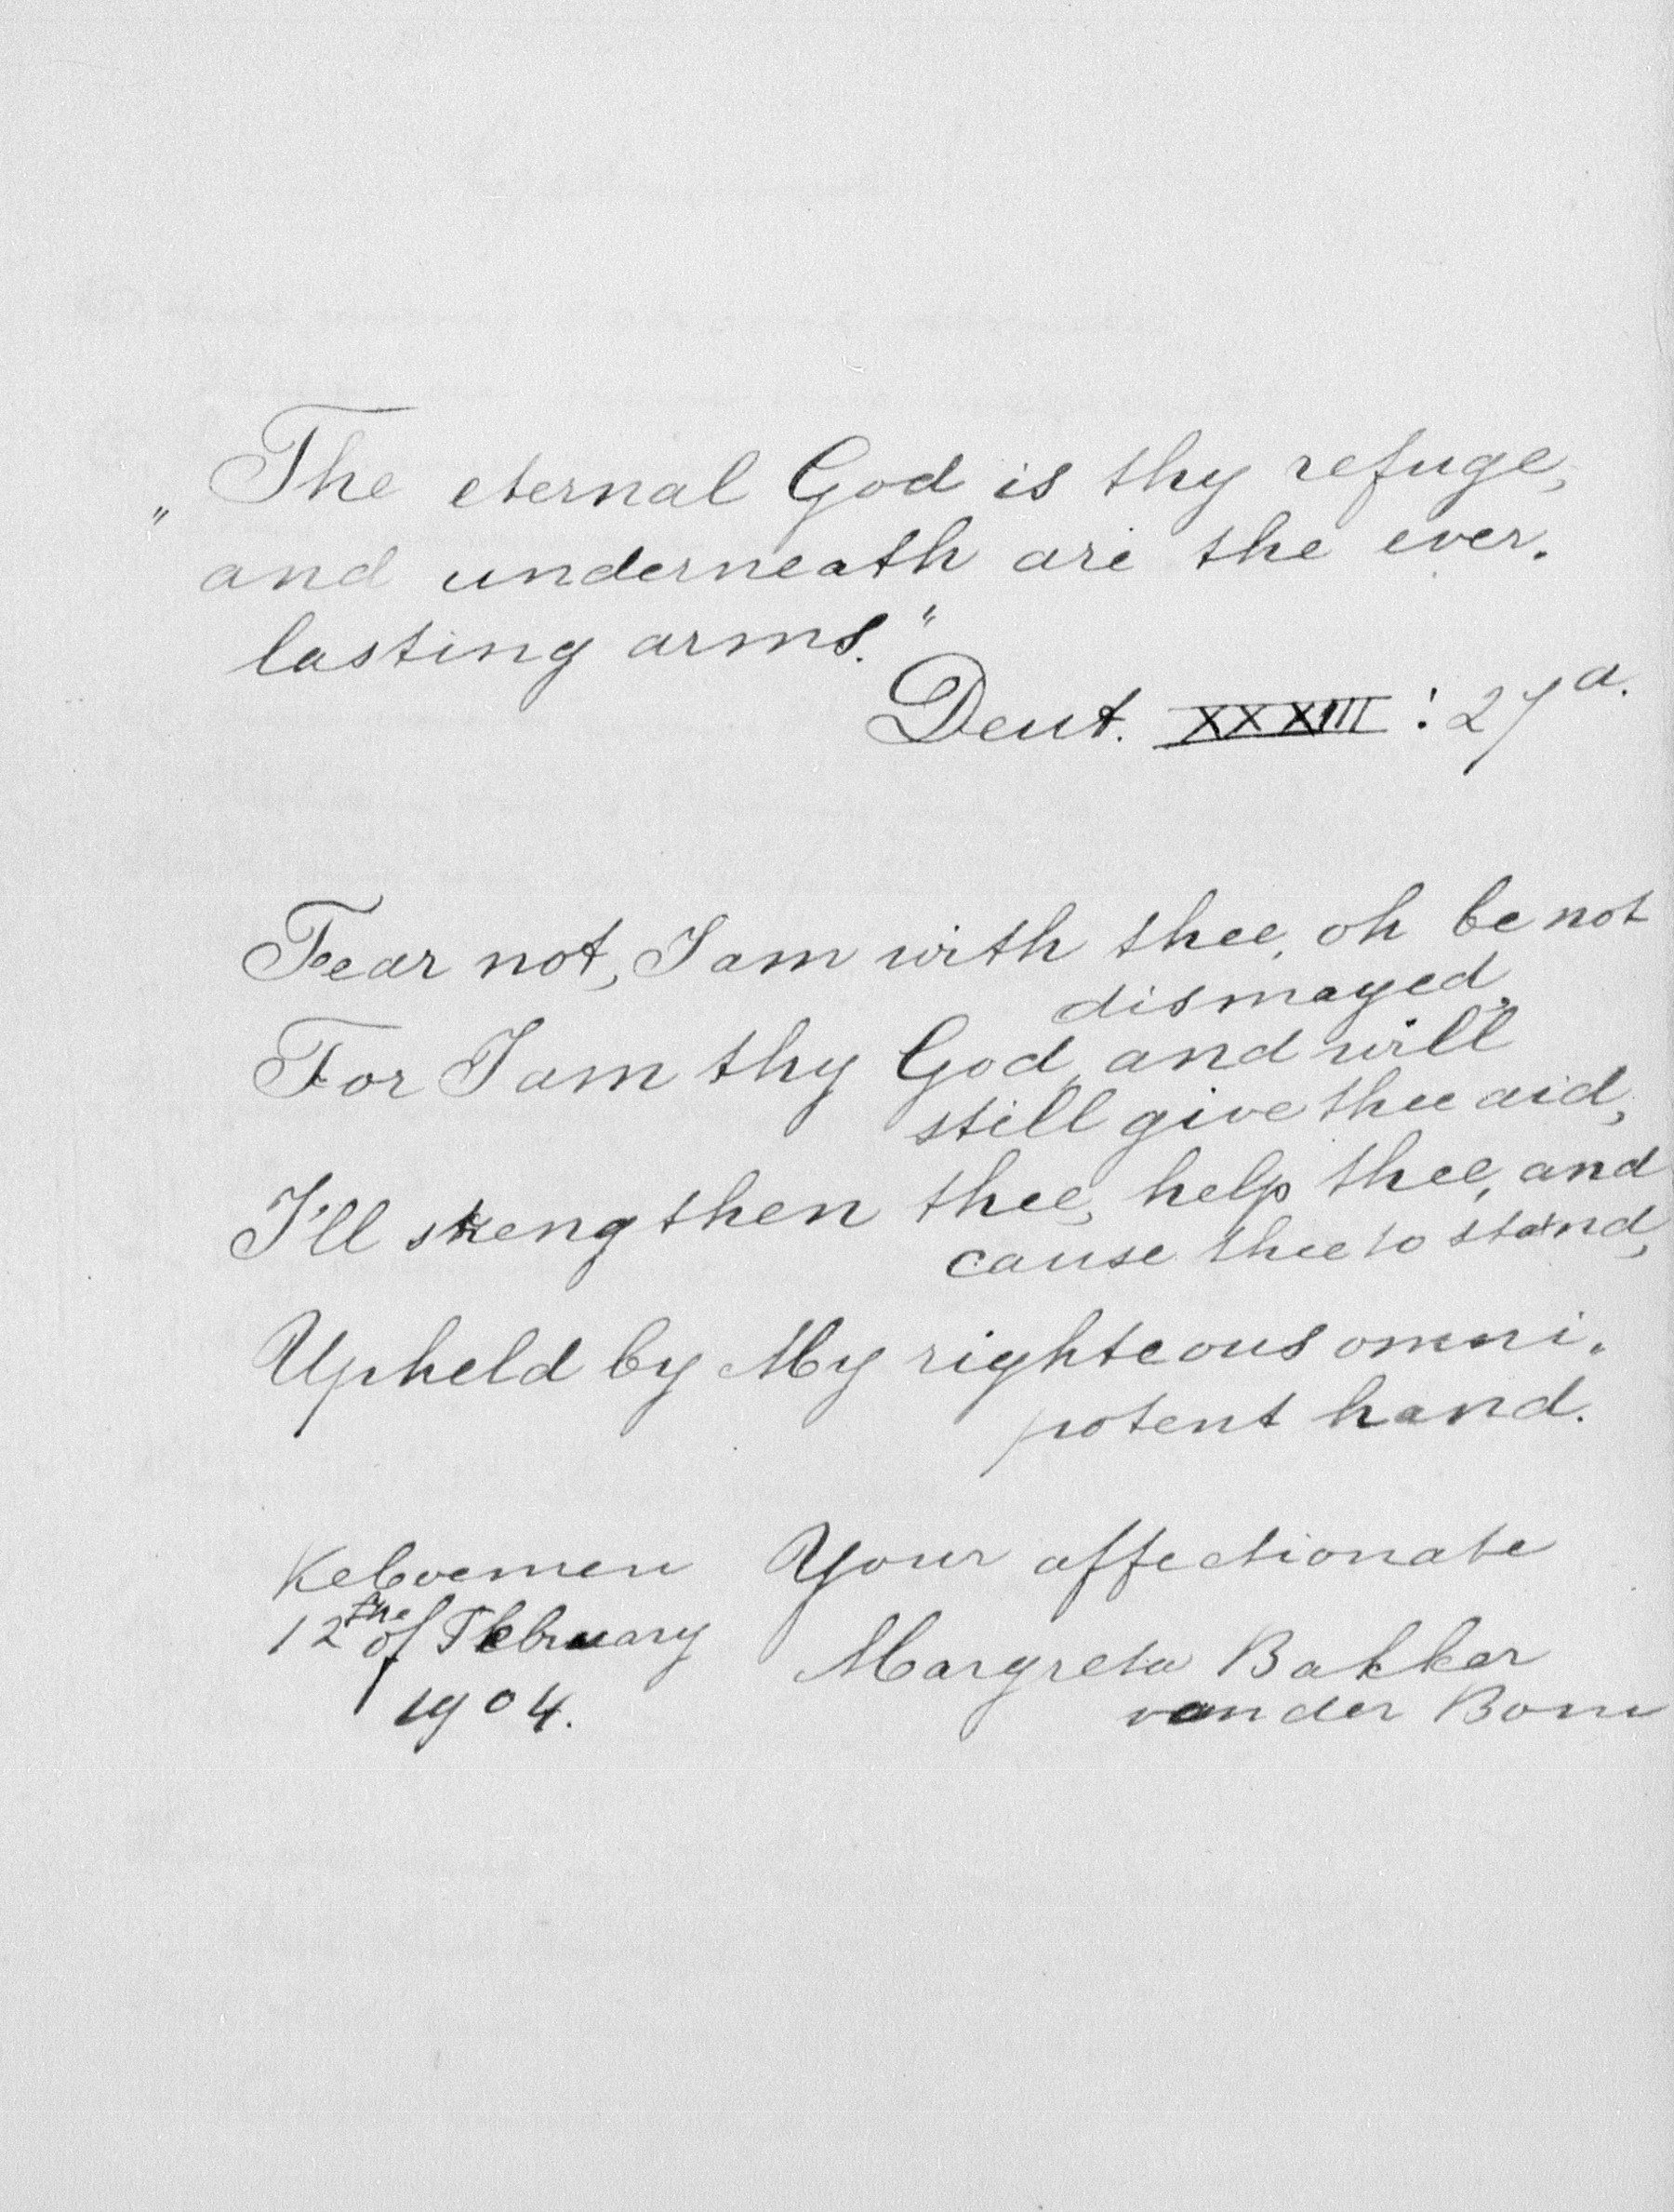 „The eternal God is thy refuge,
and underneath are the ever.
lasting arms."
Deut. XXXIII : 27 a.
Fear not, I am with thee, oh be not
dismayed,
For I am thy God, and will
still give thee aid,
I'll strengthen thee, help thee, and
cause thee to stand,
Upheld by My righteous omni.
potent hand.
Keboemen Your affectionate
12 the of February Margreta Bakker
1904. van der Bom